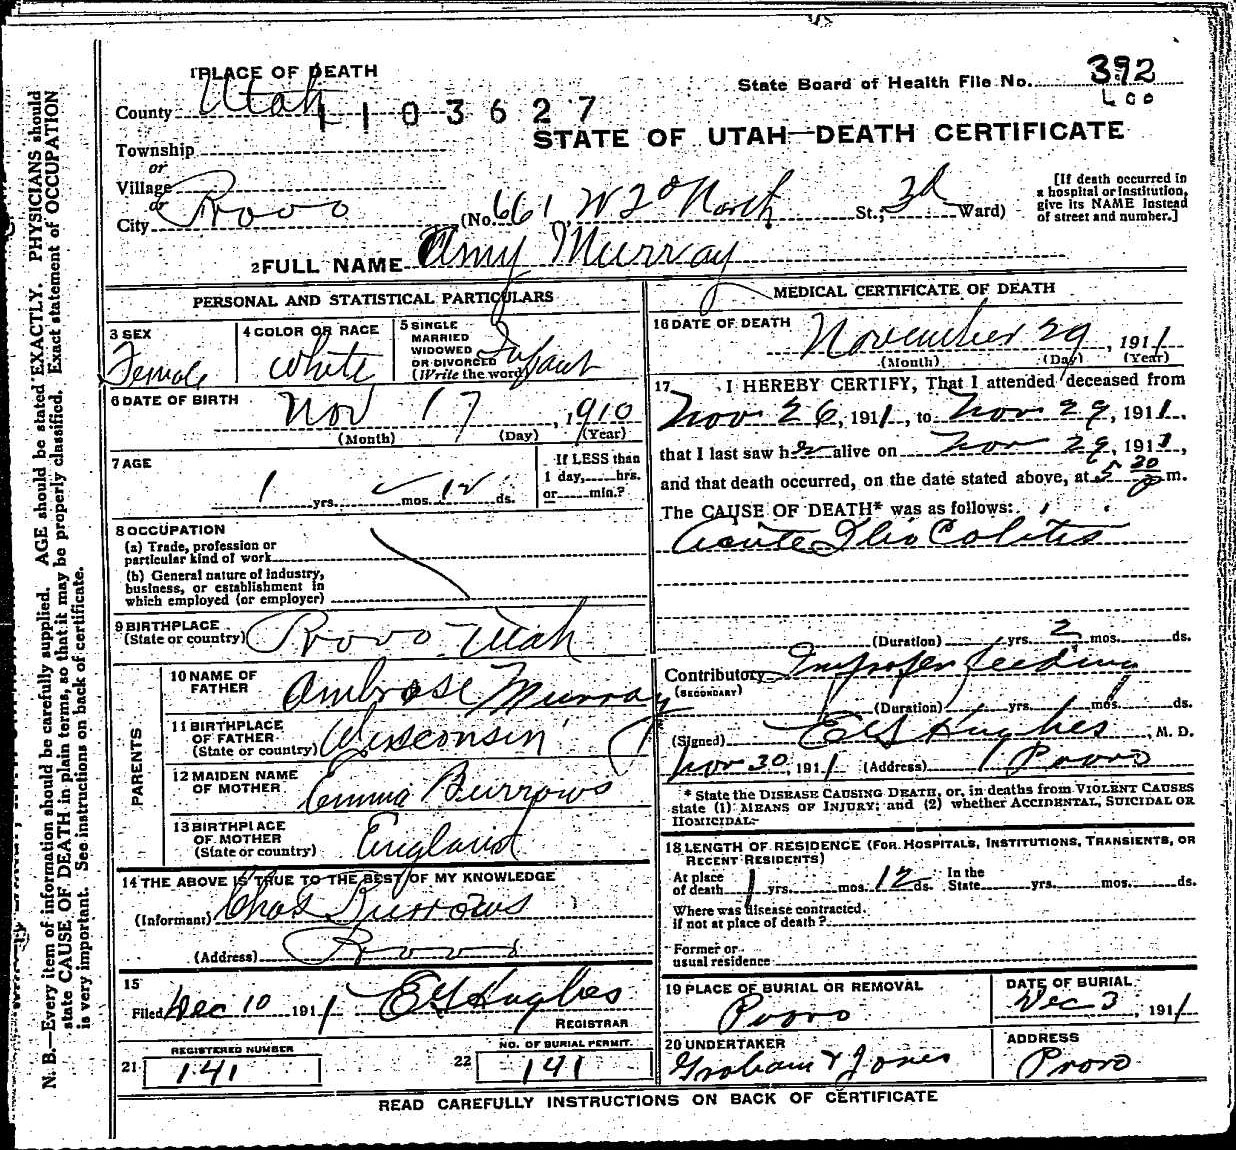 1 PLACE OF DEATH
State Board of Health File No. 392
County Utah
1103627
STATE OF UTAH—DEATH CERTIFICATE
Township
or
Village
or
City Provo (No. 661 W 2d North St.; 3d Ward)
[If death occurred in a hospital or institution, give its NAME instead of street and number.]
2 FULL NAME Amy Murray
PERSONAL AND STATISTICAL PARTICULARS
3 SEX
Female
4 COLOR OR RACE
White
5 SINGLE MARRIED WIDOWED OR DIVORCED (Write the word) Infant
6 DATE OF BIRTH
Nov 17, 1910
(Month) (Day) (Year)
7 AGE
1 yrs. mos. 12 ds.
If LESS than 1 day, hrs. or min.?
8 OCCUPATION
(a) Trade, profession or particular kind of work
(b) General nature of industry, business, or establishment in which employed (or employer)
9 BIRTHPLACE
(State or country) Provo Utah
PARENTS
10 NAME OF FATHER Ambrose Murray
11 BIRTHPLACE OF FATHER (State or country) Wisconsin
12 MAIDEN NAME OF MOTHER Emma Burrows
13 BIRTHPLACE OF MOTHER (State or country) England
14 THE ABOVE IS TRUE TO THE BEST OF MY KNOWLEDGE
(Informant) Chas Burrows
(Address) Provo
15
Filed Dec 10 1911 Hughes
REGISTRAR
REGISTERED NUMBER
21 141
NO. OF BURIAL PERMIT.
22 141
MEDICAL CERTIFICATE OF DEATH
16 DATE OF DEATH
November 29, 1911
(Month) (Day) (Year)
17 I HEREBY CERTIFY, That I attended deceased from
Nov 26, 1911, to Nov 29, 1911,
that I last saw her alive on Nov 29, 1911,
and that death occurred, on the date stated above, at 5 30 m.
The CAUSE OF DEATH* was as follows:
Acute Ilio Colitis
(Duration) yrs. 2 mos. ds.
Contributory Improper feeding
(SECONDARY)
(Duration) yrs. mos. ds.
(Signed) Hughes, M. D.
Nov 30, 1911 (Address) Provo
* State the DISEASE CAUSING DEATH, or, in deaths from VIOLENT CAUSES state (1) MEANS OF INJURY; and (2) whether ACCIDENTAL, SUICIDAL OR HOMICIDAL.
18 LENGTH OF RESIDENCE (FOR HOSPITALS, INSTITUTIONS, TRANSIENTS, OR RECENT RESIDENTS)
At place of death 1 yrs. mos. 12 ds. In the State yrs. mos. ds.
Where was disease contracted. if not at place of death?
Former or usual residence
19 PLACE OF BURIAL OR REMOVAL
Provo
DATE OF BURIAL
Dec 3, 1911
20 UNDERTAKER
Graham & Jones
ADDRESS
Provo
READ CAREFULLY INSTRUCTIONS ON BACK OF CERTIFICATE
N. B.—Every item of information should be carefully supplied. AGE should be stated EXACTLY. PHYSICIANS should
state CAUSE OF DEATH in plain terms, so that it may be properly classified. Exact statement of OCCUPATION
is very important. See instructions on back of certificate.